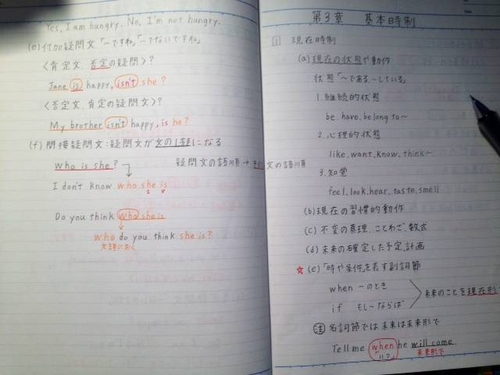 Yes, I am hungry. No, I'm not hungry.
(e) 付加疑問文「〜ですね」「〜でないですね」
〈肯定文, 否定の疑問文〉?
Jane is happy, isn't she?
〈否定文, 肯定の疑問文〉?
My brother isn't happy, is he?
(f) 間接疑問文:疑問文が文の1部になる
who is she? 疑問文の語順→ 文の語順
I don't know who she is
Do you think who she is
who do you think she is?
文頭におく
第3章 基本時制
1 現在時制
(a) 現在の状態や動作
状態「〜である、〜している」
1. 継続的状態
be, have, belong to〜
2. 心理的状態
like, want, know, think〜
3. 知覚
feel, look, hear, taste, smell
(b) 現在の習慣的動作
(c) 不変の真理、ことわざ、数式
(d) 未来の確定した予定、計画
☆(e)「時や条件」を表す副詞節
when 〜のとき
if もし〜ならば
未来のことを現在形
注 名詞節では未来は未来形で
Tell me when he will come
「いつ」 未来形で